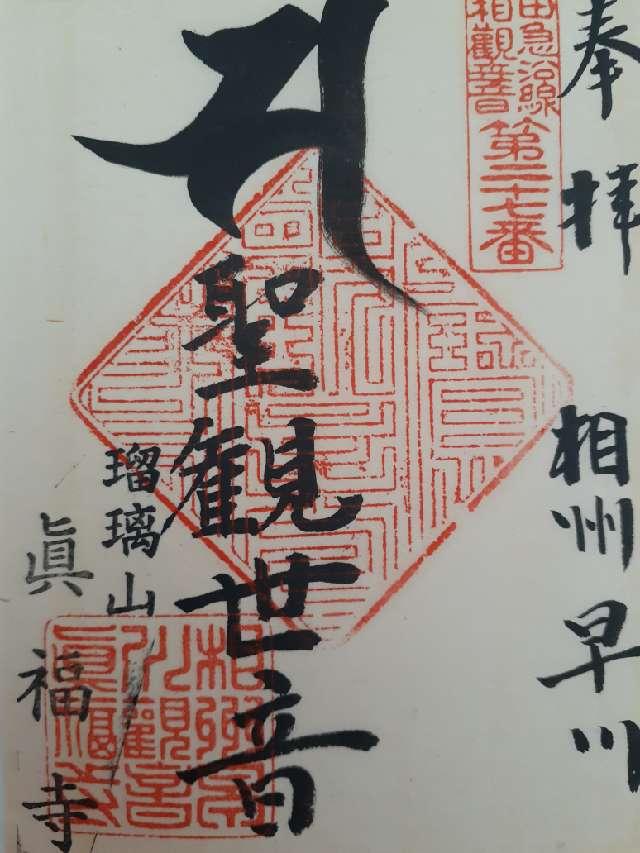 奉拝
相州早川
田急沿線
相観音
第二十七番
聖観世音
瑠璃山
眞福寺